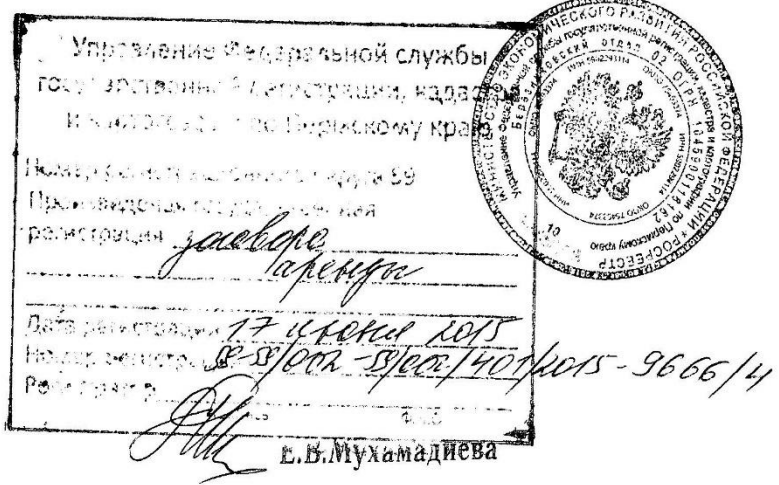 Управление Федеральной службы
государственной регистрации, кадастра
и картографии по Пермскому краю
Номер регистрационного округа 59
Произведена государственная
регистрация договора
аренды
Дата регистрации 17 июня 2015
Номер регистрации 59-59/002-59/002/401/2015-9666/4
Регистратор
Е.В.Мухамадиева
МИНИСТЕРСТВО ЭКОНОМИЧЕСКОГО РАЗВИТИЯ РОССИЙСКОЙ ФЕДЕРАЦИИ * РОСРЕЕСТР
Управление Федеральной службы государственной регистрации, кадастра и картографии по Пермскому краю
отдел 02 ОГРН 1045900118162
ОКПО 15453374
10